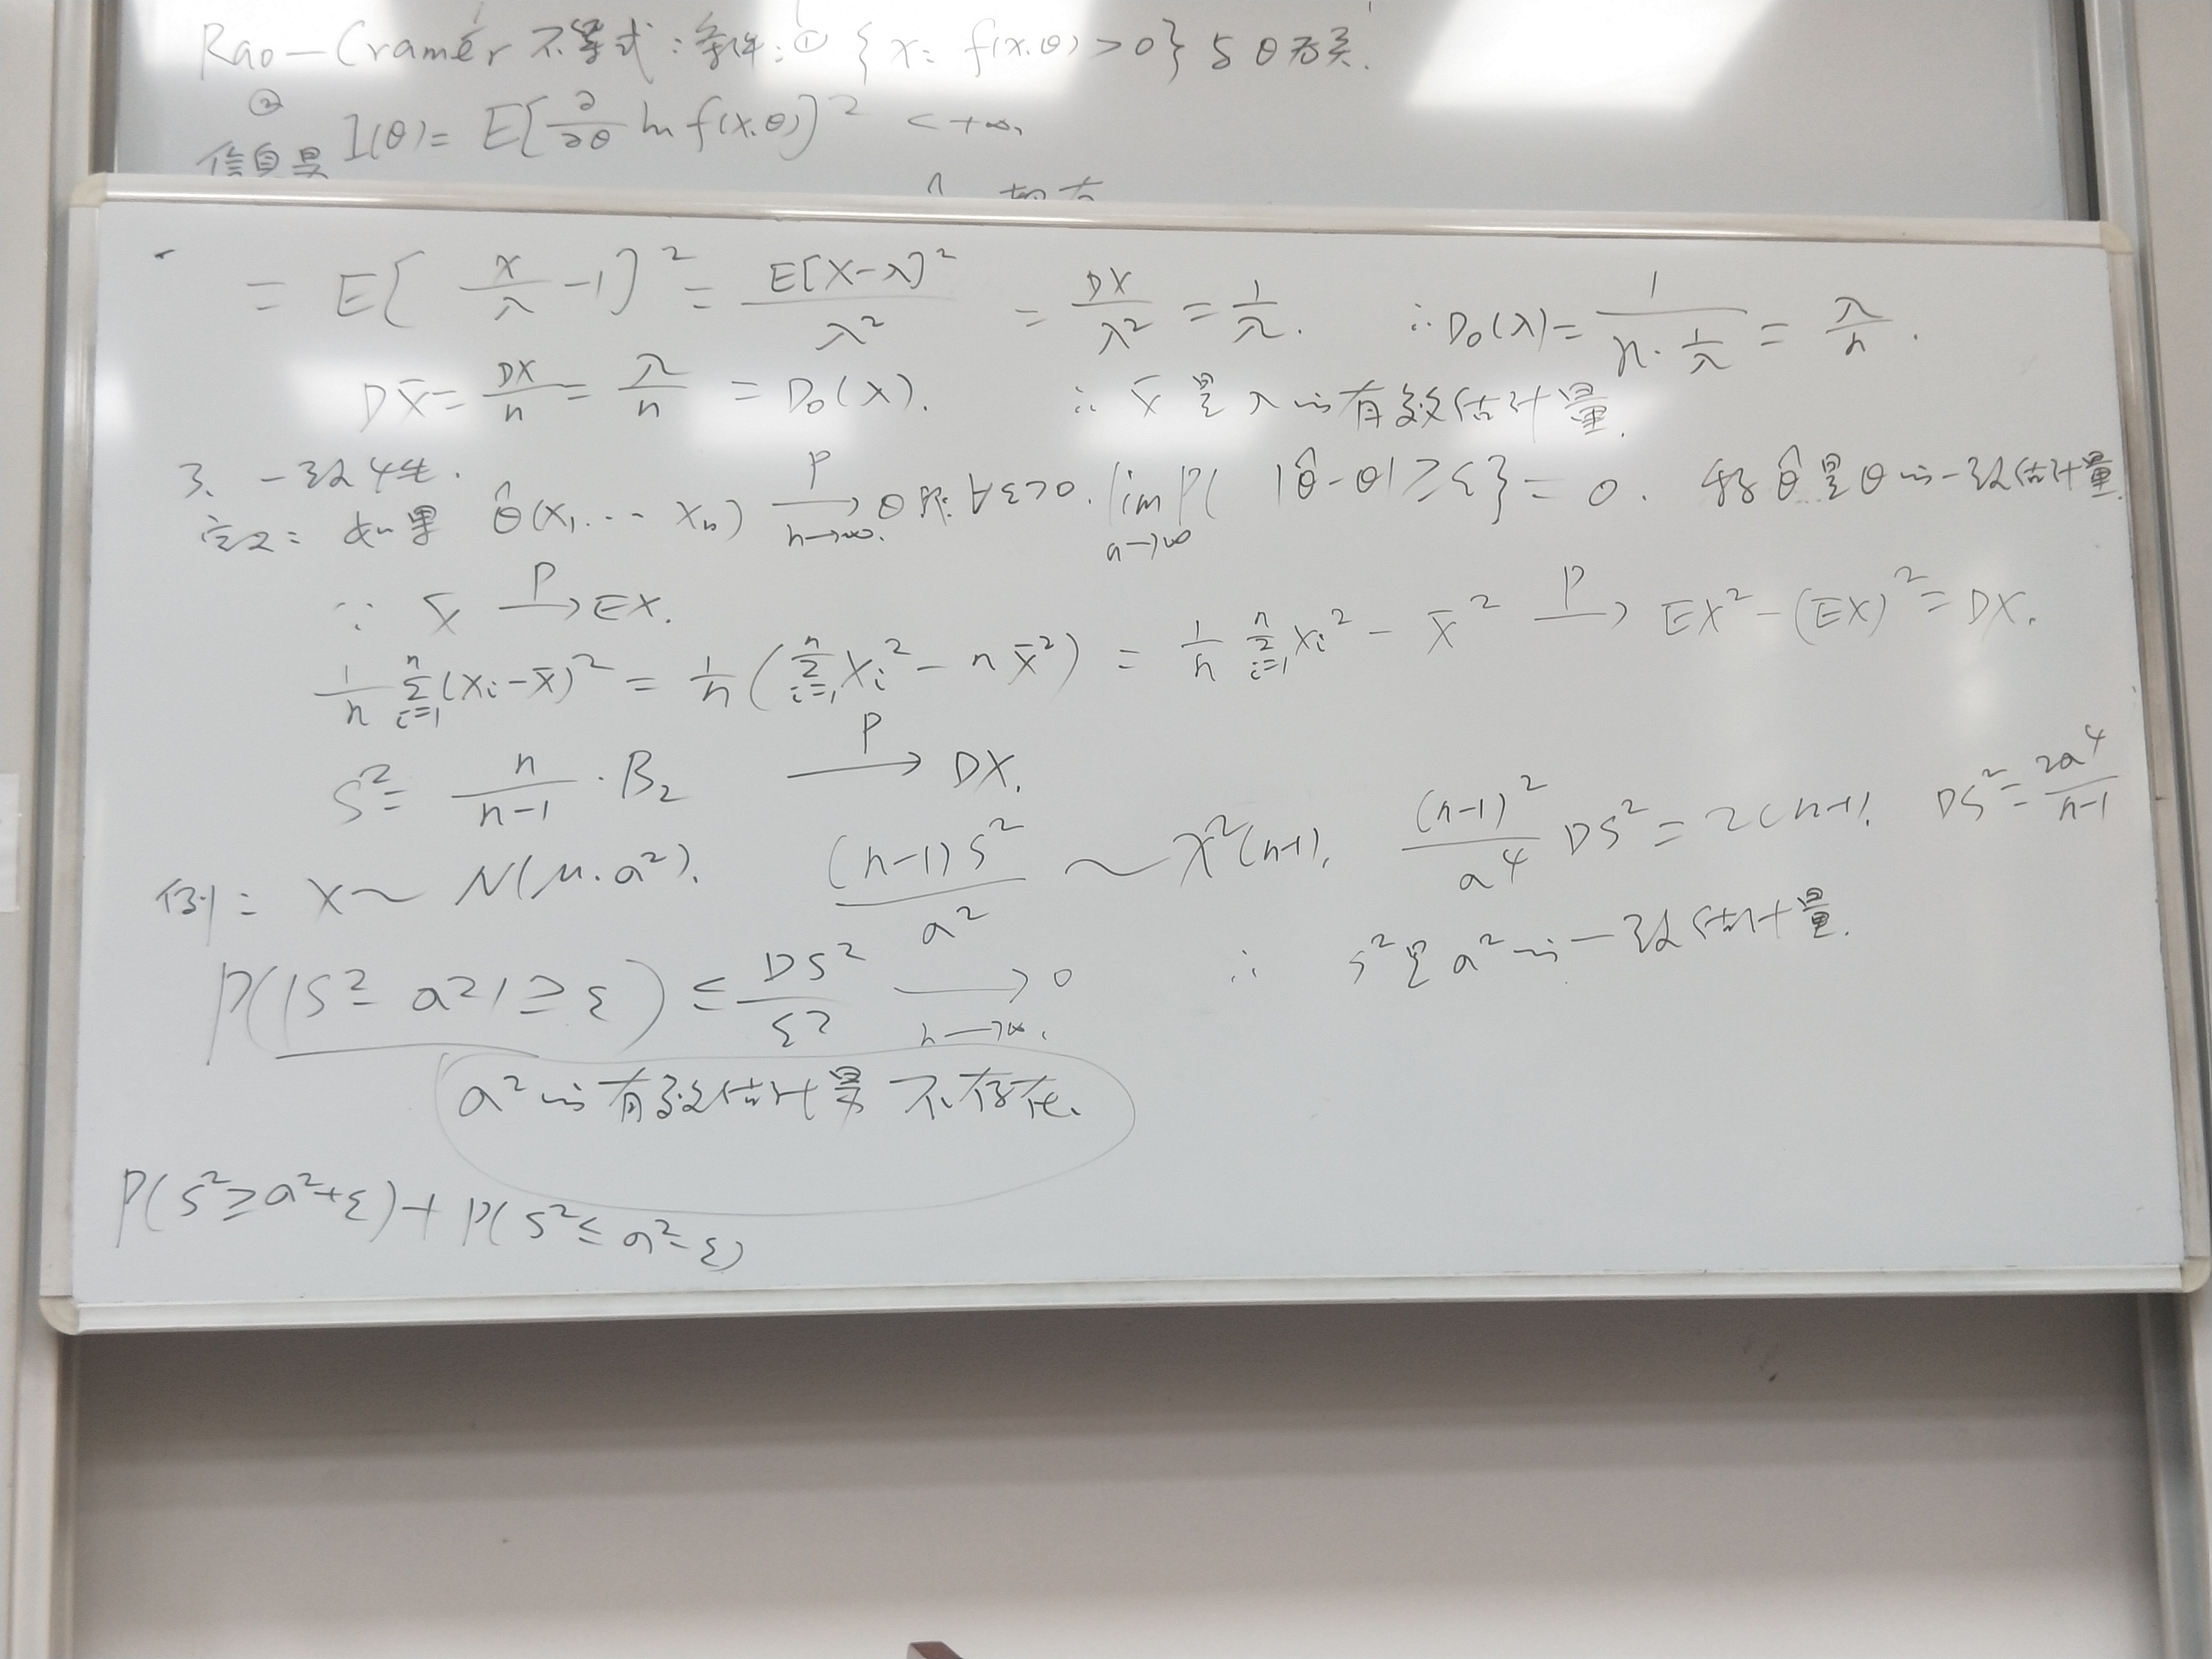 Rao-Cramér 不等式:条件:① {x: f(x.θ)>0}与θ无关.
② 信息量 I(θ)= E[∂/∂θ ln f(x.θ)]² <+∞,
= E[x/λ -1]² = E[X-λ]²/λ² = DX/λ² = 1/λ. ∴D₀(λ)= 1/(n·1/λ) = λ/n.
DX̄= DX/n = λ/n = D₀(λ). ∴ X̄是λ的有效估计量.
3、一致性.
定义: 如果 θ̂(X₁...Xₙ) P→ n→∞ θ 即:∀ε>0. lim n→∞ P{|θ̂-θ|≥ε}=0. 称θ̂是θ的一致估计量.
∵ X̄ P→ EX.
1/n Σᵢ₌₁ⁿ(Xᵢ-X̄)² = 1/n(Σᵢ₌₁ⁿXᵢ²-nX̄²) = 1/n Σᵢ₌₁ⁿXᵢ² - X̄² P→ EX²-(EX)²=DX.
S²= n/(n-1)·B₂ P→ DX.
例: X~N(μ.a²). (n-1)S²/a² ~ χ²(n-1), (n-1)²/a⁴ DS²=2(n-1). DS²=2a⁴/(n-1)
P(|S²-a²|≥ε) ≤ DS²/ε² → n→∞. 0 ∴ S²是a²的一致估计量.
a²的有效估计量不存在.
P(S²≥a²+ε)+P(S²≤a²-ε)